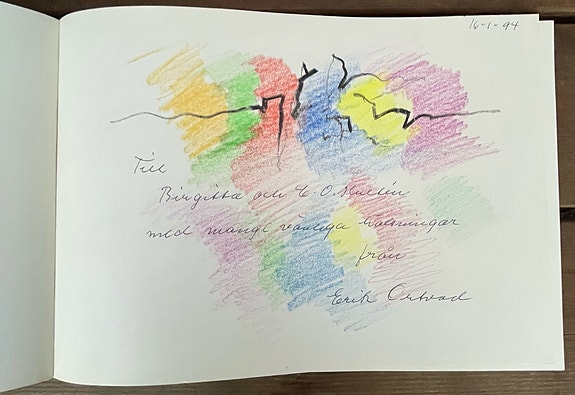 16-1-94
Till
Birgitta och C. O. Hultén
med mange vänliga hälsningar
från
Erik Ortvad